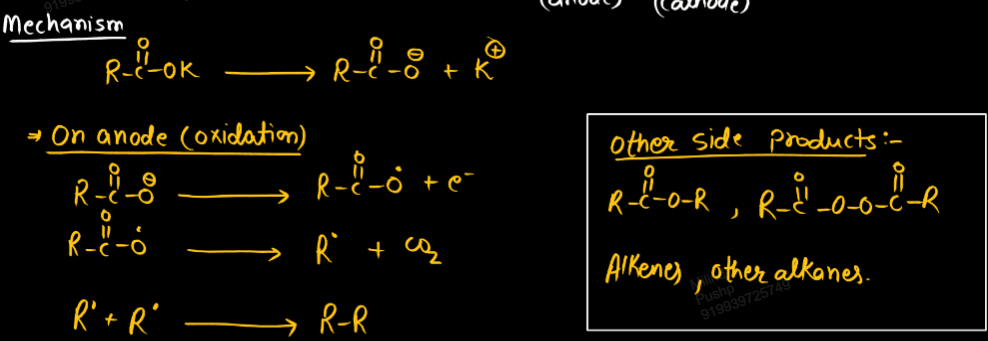 (anode) (cathode)
Mechanism
R-C(=O)-OK ⟶ R-C(=O)-O⊖ + K⊕
⇒ On anode (oxidation)
R-C(=O)-O⊖ ⟶ R-C(=O)-O• + e⁻
R-C(=O)-O• ⟶ R• + CO₂
R• + R• ⟶ R-R
Other side products:-
R-C(=O)-O-R , R-C(=O)-O-O-C(=O)-R
Alkenes, other alkanes.
Pushp
919939725749